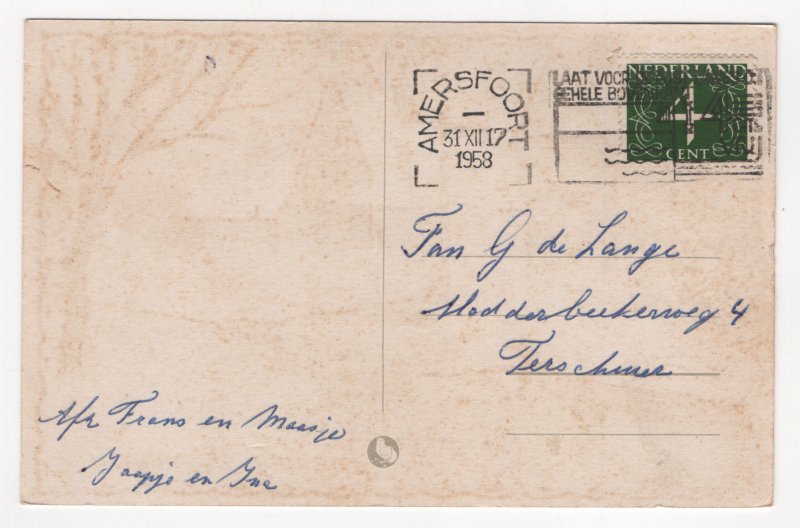 AMERSFOORT
31 XII 17
1958
LAAT VOOR
GEHELE
NEDERLAND
4
CENT
Fam G de Lange
Modderbeekerweg 4
Terschuur
Afz Frans en Maasje
Jaapje en Ina